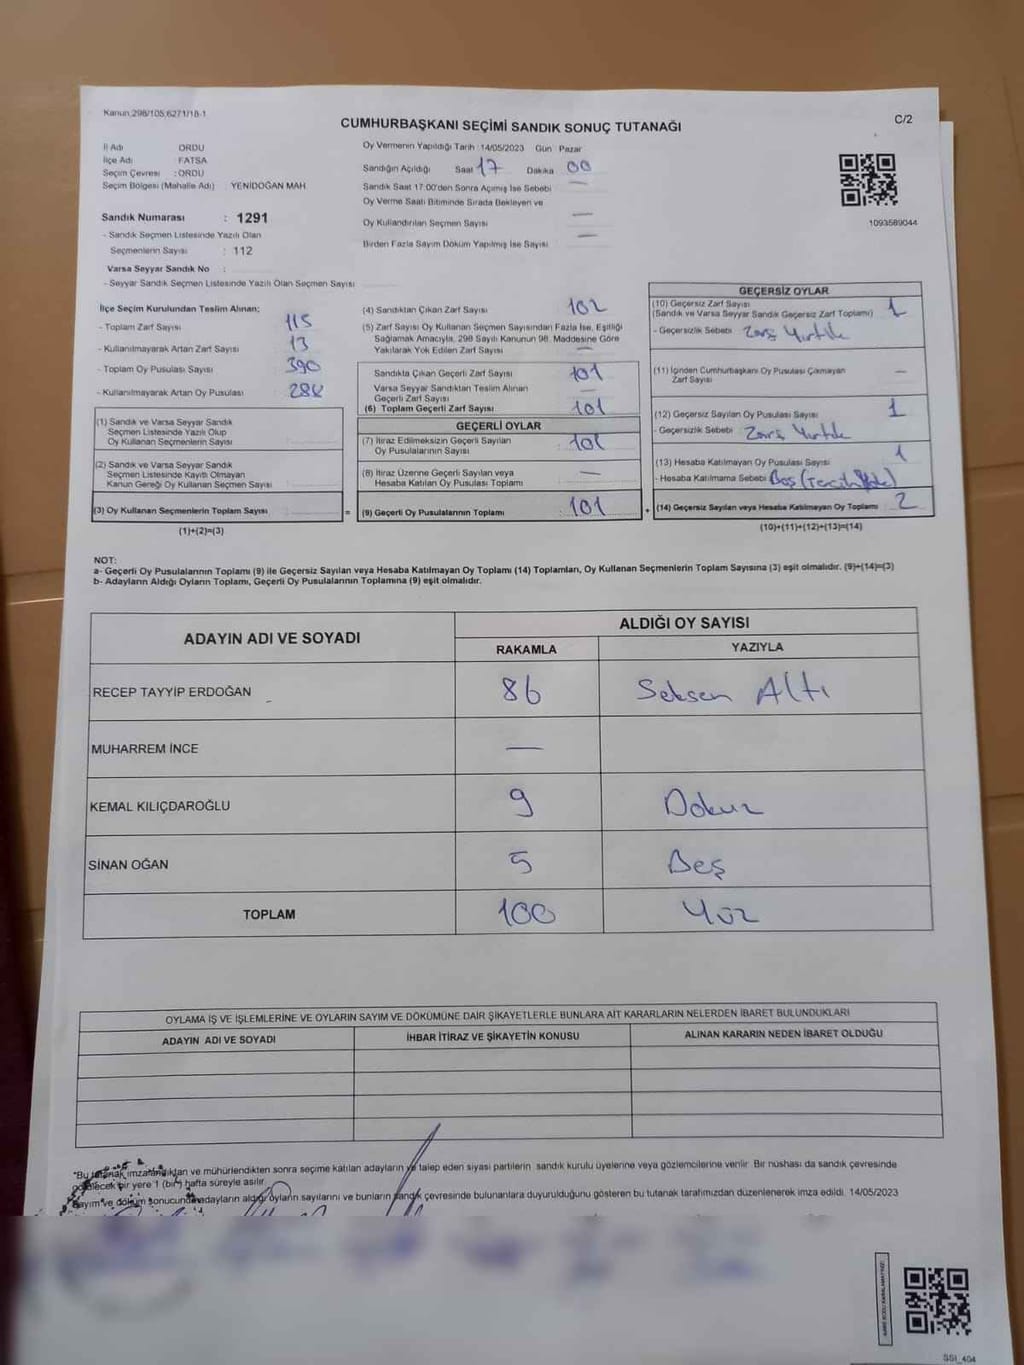 Kanun:298/105;6271/18-1
CUMHURBAŞKANI SEÇİMİ SANDIK SONUÇ TUTANAĞI
C/2
İl Adı ORDU
İlçe Adı FATSA
Seçim Çevresi : ORDU
Seçim Bölgesi (Mahalle Adı) : YENİDOĞAN MAH.
Sandık Numarası : 1291
- Sandık Seçmen Listesinde Yazılı Olan
Seçmenlerin Sayısı : 112
Varsa Seyyar Sandık No :
- Seyyar Sandık Seçmen Listesinde Yazılı Olan Seçmen Sayısı
Oy Vermenin Yapıldığı Tarih : 14/05/2023 Gün : Pazar
Sandığın Açıldığı Saat 17 Dakika 00
Sandık Saat 17:00'den Sonra Açılmış İse Sebebi —
Oy Verme Saati Bitiminde Sırada Bekleyen ve
Oy Kullandırılan Seçmen Sayısı —
Birden Fazla Sayım Döküm Yapılmış İse Sayısı —
1093589044
İlçe Seçim Kurulundan Teslim Alınan:
- Toplam Zarf Sayısı 115
- Kullanılmayarak Artan Zarf Sayısı 13
- Toplam Oy Pusulası Sayısı 390
- Kullanılmayarak Artan Oy Pusulası
(1) Sandık ve Varsa Seyyar Sandık
Seçmen Listesinde Yazılı Olup
Oy Kullanan Seçmenlerin Sayısı
(2) Sandık ve Varsa Seyyar Sandık
Seçmen Listesinde Kayıtlı Olmayan
Kanun Gereği Oy Kullanan Seçmen Sayısı
(3) Oy Kullanan Seçmenlerin Toplam Sayısı =
(1)+(2)=(3)
(4) Sandıktan Çıkan Zarf Sayısı 102
(5) Zarf Sayısı Oy Kullanan Seçmen Sayısından Fazla İse, Eşitliği
Sağlamak Amacıyla, 298 Sayılı Kanunun 98. Maddesine Göre
Yakılarak Yok Edilen Zarf Sayısı —
Sandıkta Çıkan Geçerli Zarf Sayısı 101
Varsa Seyyar Sandıktan Teslim Alınan
Geçerli Zarf Sayısı —
(6) Toplam Geçerli Zarf Sayısı 101
GEÇERLİ OYLAR
(7) İtiraz Edilmeksizin Geçerli Sayılan
Oy Pusulalarının Sayısı 101
(8) İtiraz Üzerine Geçerli Sayılan veya
Hesaba Katılan Oy Pusulası Toplamı —
(9) Geçerli Oy Pusulalarının Toplamı 101 +
GEÇERSİZ OYLAR
(10) Geçersiz Zarf Sayısı 1
(Sandık ve Varsa Seyyar Sandık Geçersiz Zarf Toplamı)
- Geçersizlik Sebebi
(11) İçinden Cumhurbaşkanı Oy Pusulası Çıkmayan —
Zarf Sayısı
(12) Geçersiz Sayılan Oy Pusulası Sayısı 1
- Geçersizlik Sebebi
(13) Hesaba Katılmayan Oy Pusulası Sayısı 1
- Hesaba Katılmama Sebebi Boş
(14) Geçersiz Sayılan veya Hesaba Katılmayan Oy Toplamı 2
(10)+(11)+(12)+(13)=(14)
NOT:
a- Geçerli Oy Pusulalarının Toplamı (9) ile Geçersiz Sayılan veya Hesaba Katılmayan Oy Toplamı (14) Toplamları, Oy Kullanan Seçmenlerin Toplam Sayısına (3) eşit olmalıdır. (9)+(14)=(3)
b- Adayların Aldığı Oyların Toplamı, Geçerli Oy Pusulalarının Toplamına (9) eşit olmalıdır.
ADAYIN ADI VE SOYADI ALDIĞI OY SAYISI
RAKAMLA YAZIYLA
RECEP TAYYİP ERDOĞAN 86 Seksen Altı
MUHARREM İNCE —
KEMAL KILIÇDAROĞLU 9 Dokuz
SİNAN OĞAN 5 Beş
TOPLAM 100 Yüz
OYLAMA İŞ VE İŞLEMLERİNE VE OYLARIN SAYIM VE DÖKÜMÜNE DAİR ŞİKAYETLERLE BUNLARA AİT KARARLARIN NELERDEN İBARET BULUNDUKLARI
ADAYIN ADI VE SOYADI İHBAR İTİRAZ VE ŞİKAYETİN KONUSU ALINAN KARARIN NEDEN İBARET OLDUĞU
"Bu tutanak imzalandıktan ve mühürlendikten sonra seçime katılan adayların ve talep eden siyasi partilerin sandık kurulu üyelerine veya gözlemcilerine verilir. Bir nüshası da sandık çevresinde
görülecek bir yere 1 (bir) hafta süreyle asılır.
Sayım ve döküm sonucunda adayların aldığı oyların sayılarını ve bunların sandık çevresinde bulunanlara duyurulduğunu gösteren bu tutanak tarafımızdan düzenlenerek imza edildi. 14/05/2023
SSI_404